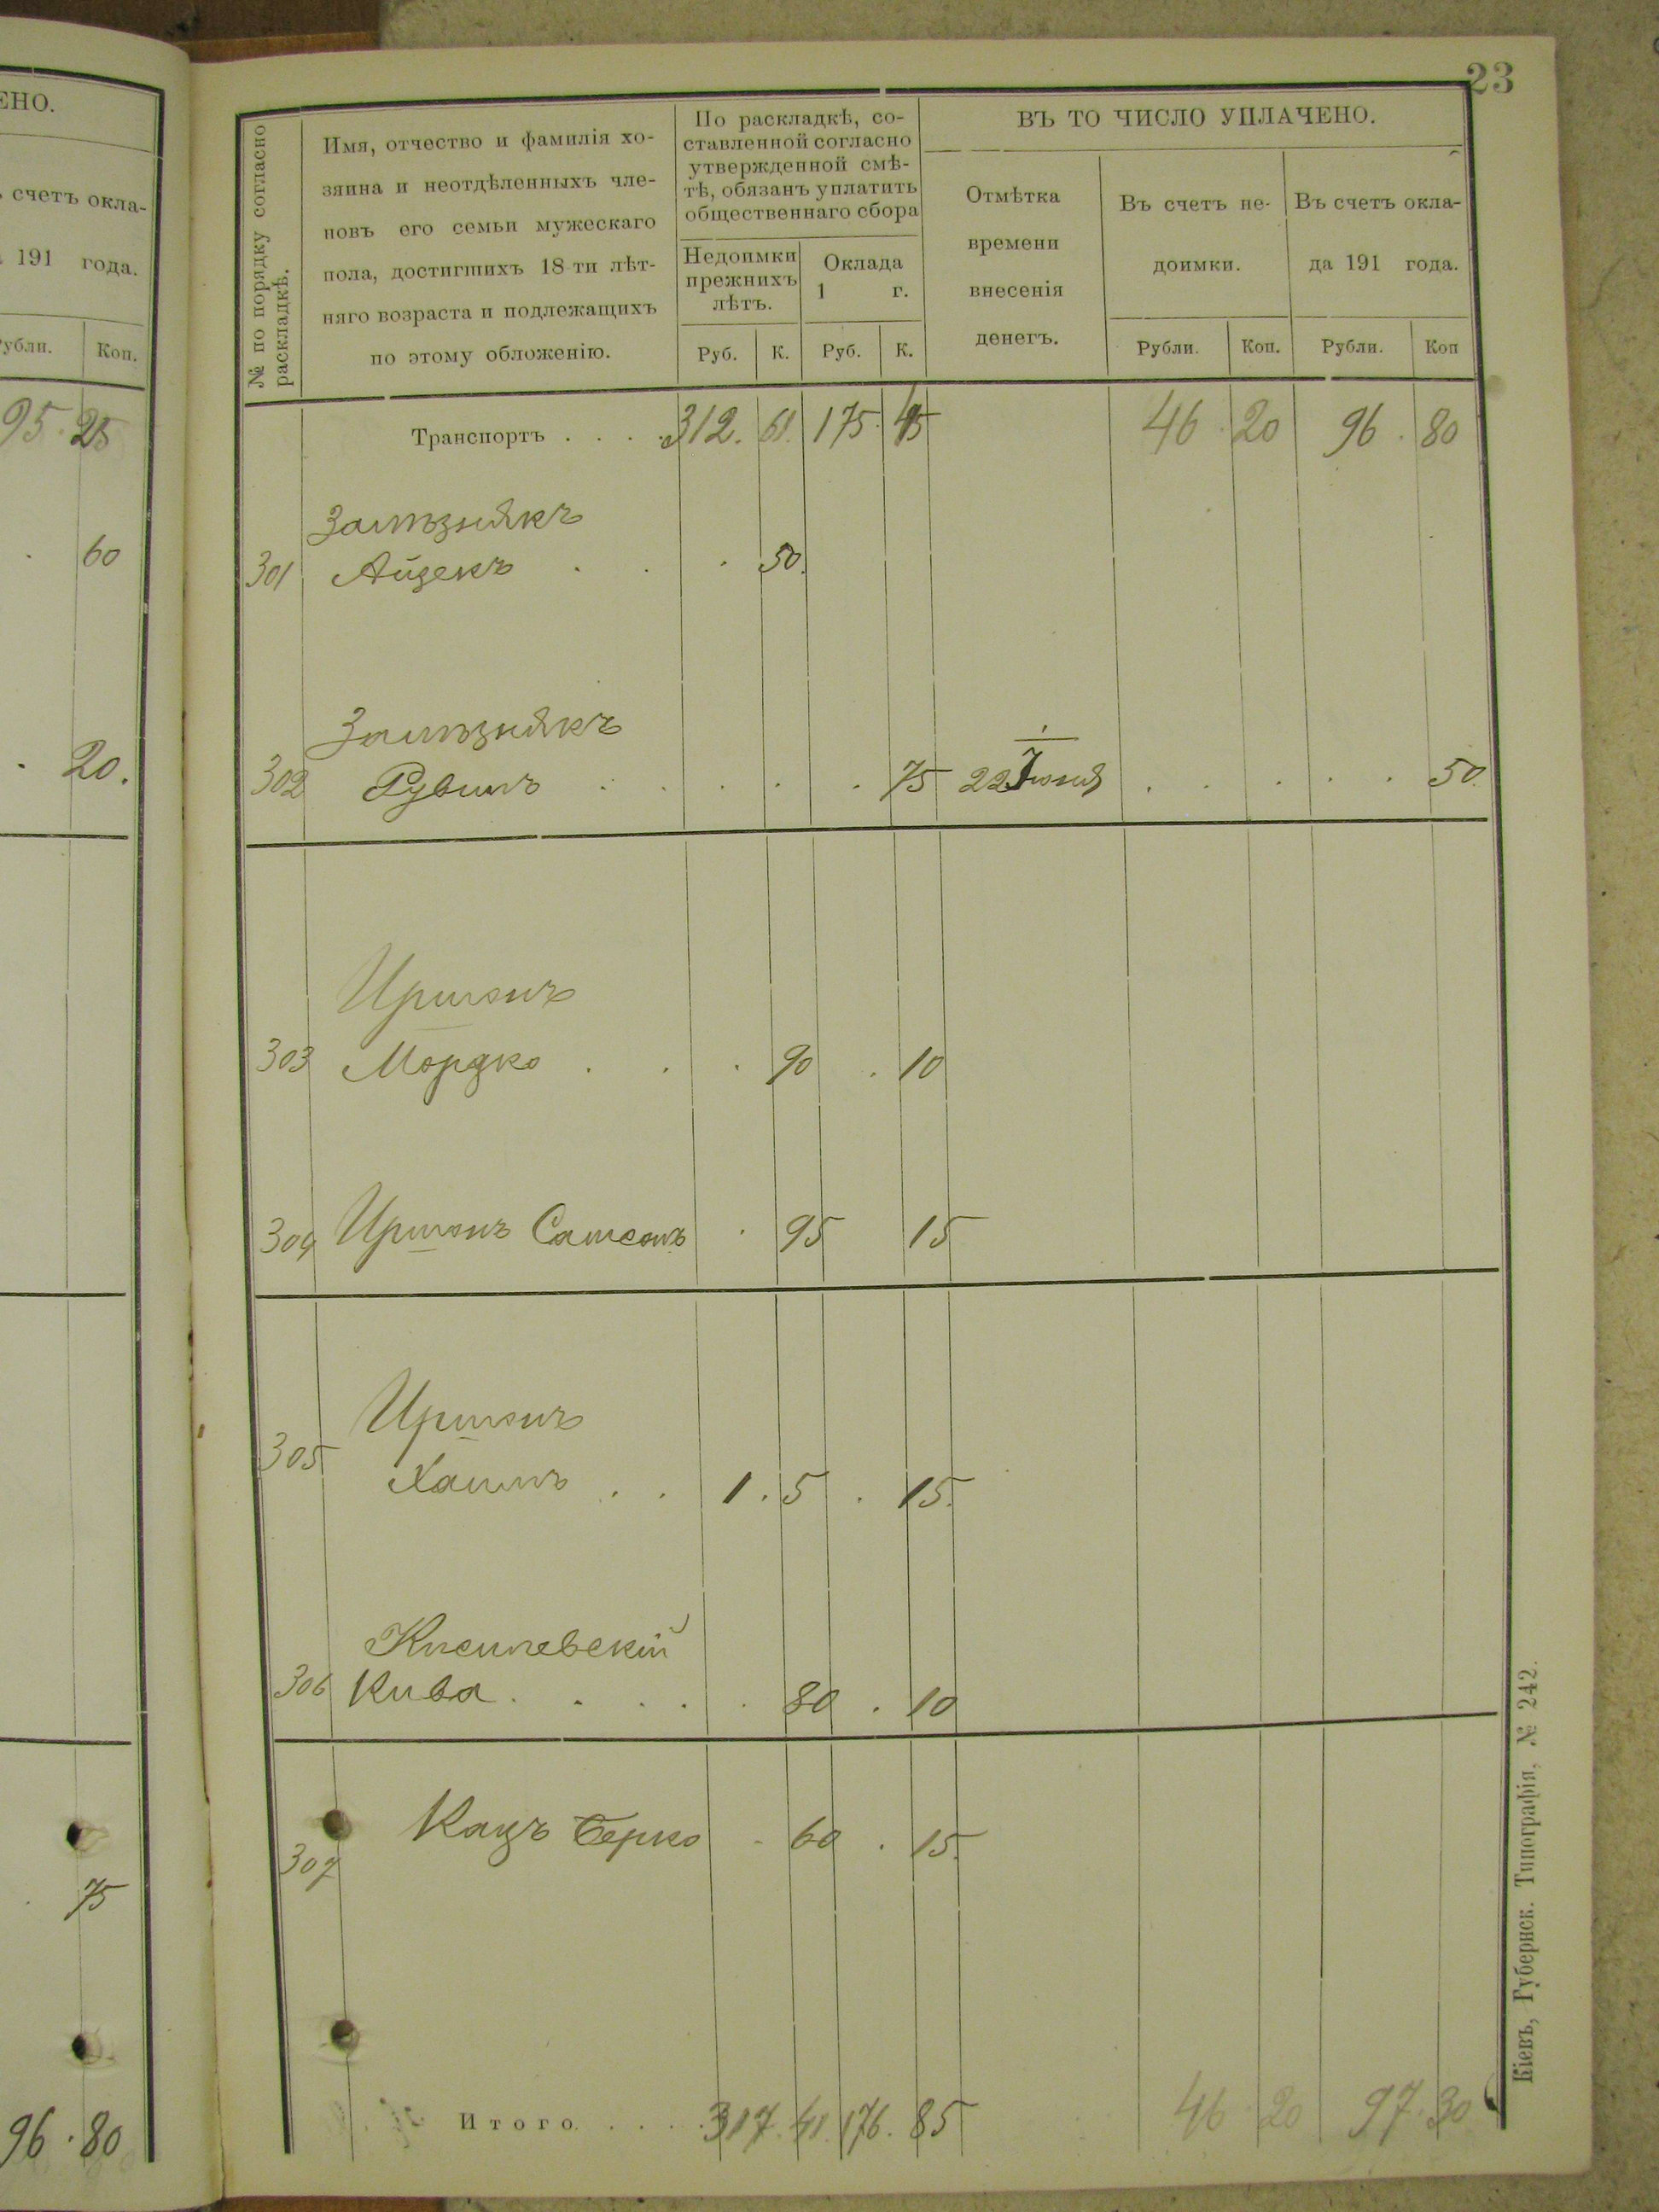 ЕНО.
ъ счетъ окла-
а 191 года.
Рубли. Коп.
95. 25
. 60
. 20.
. 75
96 . 80
23
№ по порядку согласно
раскладкѣ.
Имя, отчество и фамилія хо-
зяина и неотдѣленныхъ чле-
новъ его семьи мужескаго
пола, достигшихъ 18-ти лѣт-
няго возраста и подлежащихъ
по этому обложенію.
По раскладкѣ, со-
ставленной согласно
утвержденной смѣ-
тѣ, обязанъ уплатить
общественнаго сбора
Недоимки
прежнихъ
лѣтъ.
Оклада
1 г.
Руб. К. Руб. К.
ВЪ ТО ЧИСЛО УПЛАЧЕНО.
Отмѣтка
времени
внесенія
денегъ.
Въ счетъ не-
доимки.
Въ счетъ окла-
да 191 года.
Рубли. Коп. Рубли. Коп
Транспортъ . . . . 312. 61. 175. 45 46 . 20 96 . 80
Зализнякъ
301 Айзекъ . . . 50.
Зализнякъ
302 Рувинъ . . . . . 75 22 Іюня . . . . . 50.
Иришонъ
303 Мордко . . . 90 . 10
304 Иришонъ Самсонъ . 95 15
Иришонъ
305 Хаимъ . . 1 . 5 . 15.
Кисилевскій
306 Кива . . . . . 80 . 10
307 Кацъ Берко . 60 . 15.
Итого. . . . . 317. 41. 176. 85 46 . 20 97. 30
Кіевъ, Губернск. Типографія, № 242.